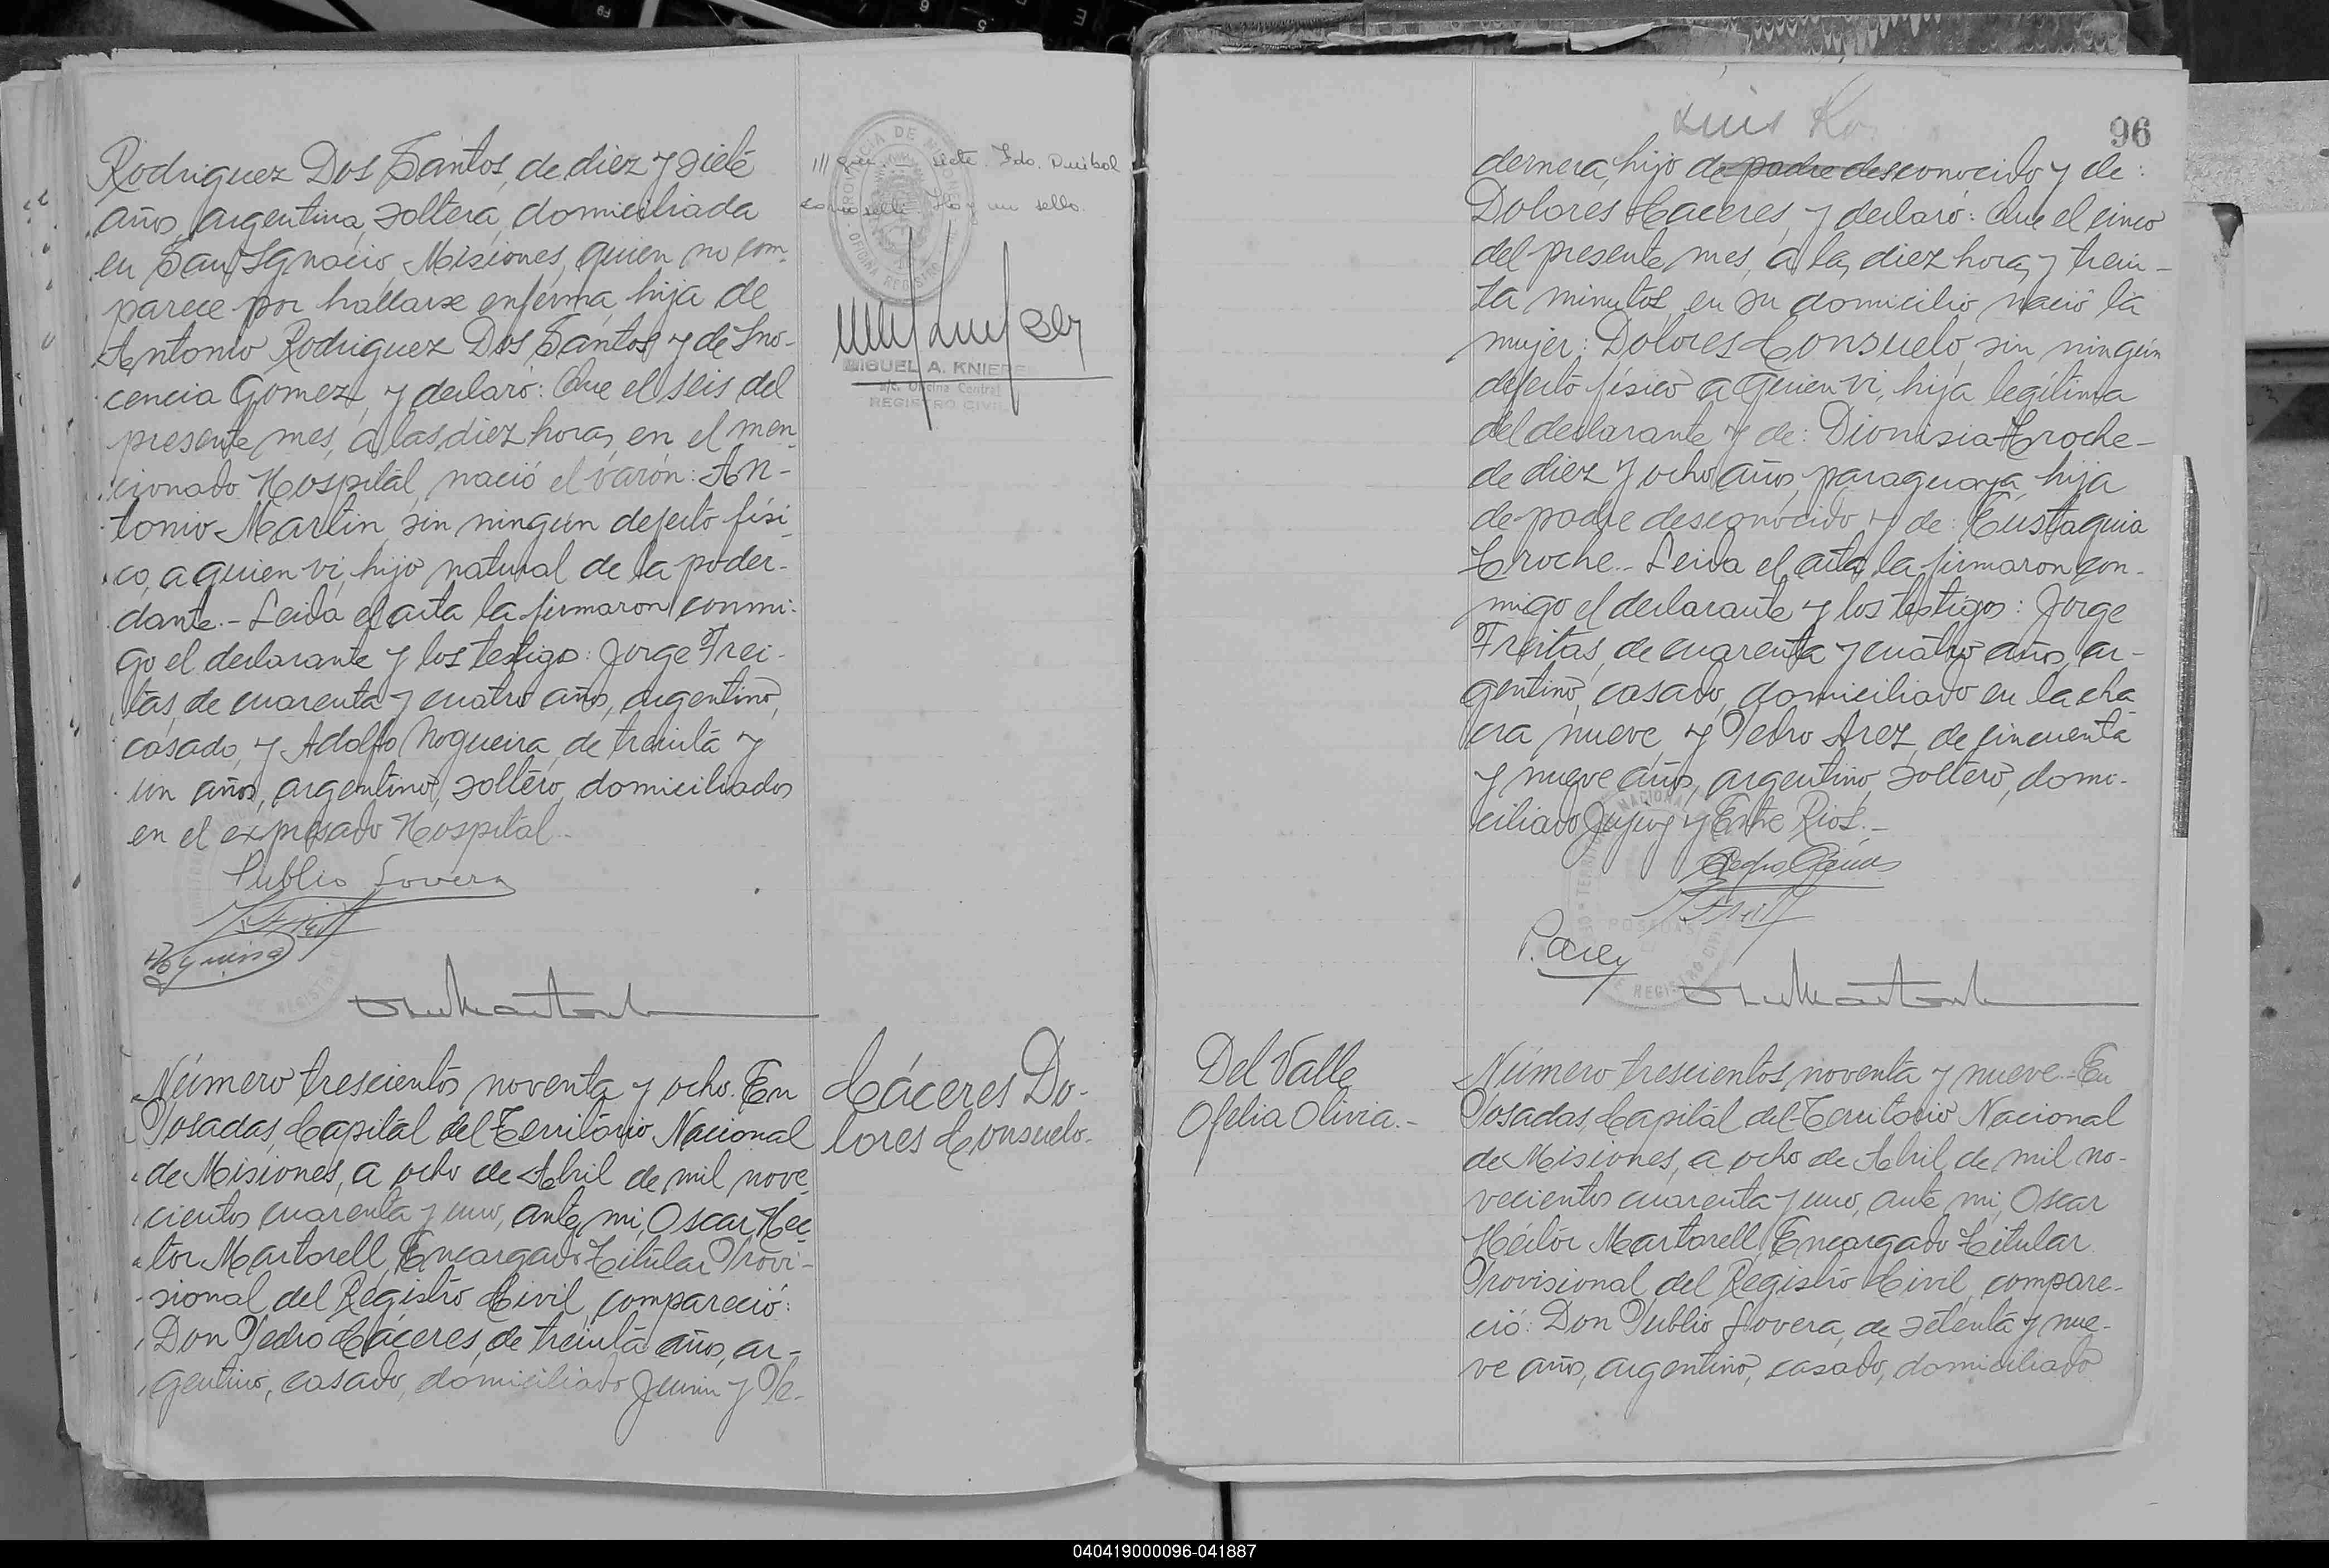 Rodriguez Dos Santos, de diez y siete
años, argentina, soltera, domiciliada
en San Ignacio, Misiones, quien no com-
parece por hallarse enferma, hija de
Antonio Rodriguez Dos Santos y de Ino-
cencia Gomez, y declaró: Que el seis del
presente mes, a las diez horas, en el men-
cionado Hospital, nació el varón: An-
tonio Martin, sin ningun defecto físi-
co, a quien vi, hijo natural de la poder-
dante.- Leida el acta la firmaron conmi-
go el declarante y los testigos: Jorge Frei-
tas, de cuarenta y cuatro años, argentino,
casado, y Adolfo Nogueira, de treinta y
un años, argentino, soltero, domiciliados
en el expresado Hospital.-
Publio Lovera
Número trescientos noventa y ocho. En
Posadas, Capital del Territorio Nacional
de Misiones, a ocho de Abril de mil nove-
cientos cuarenta y uno, ante mi, Oscar Hec-
tor Martorell, Encargado Titular Provi-
sional del Registro Civil, compareció:
Don Pedro Cáceres, de treinta años, ar-
gentino, casado, domiciliado Junin y Pe-
siete. Fdo.
Hay un sello.
PROVINCIA DE MISIONES
OFICINA REGISTRO
MIGUEL A. KNIERE
Oficina Central
REGISTRO CIVIL
Cáceres Do-
lores Consuelo.-
96
Luis
dernera, hijo de padre desconocido y de:
Dolores Caceres, y declaró: Que el cinco
del presente mes, a las diez horas y trein-
ta minutos, en su domicilio nació la
mujer: Dolores Consuelo, sin ningún
defecto físico a quien vi, hija legítima
del declarante y de: Dionisia Troche-
de diez y ocho años, paraguaya, hija
de padre desconocido y de: Eustaquia
Troche.- Leida el acta, la firmaron con-
migo el declarante y los testigos: Jorge
Freitas, de cuarenta y cuatro años, ar-
gentino, casado, domiciliado en la cha-
cra nueve, y Pedro Arez, de cincuenta
y nueve años, argentino, soltero, domi-
ciliado Jujuy y Entre Rios.-
P. Arez
POSADAS
Del Valle
Ofelia Olivia.-
Número trescientos noventa y nueve.- En
Posadas, Capital del Territorio Nacional
de Misiones, a ocho de Abril de mil no-
vecientos cuarenta y uno, ante mi, Oscar
Héctor Martorell, Encargado Titular
Provisional del Registro Civil, compare-
ció: Don Publio Lovera, de setenta y nue-
ve años, argentino, casado, domiciliado
040419000096-041887